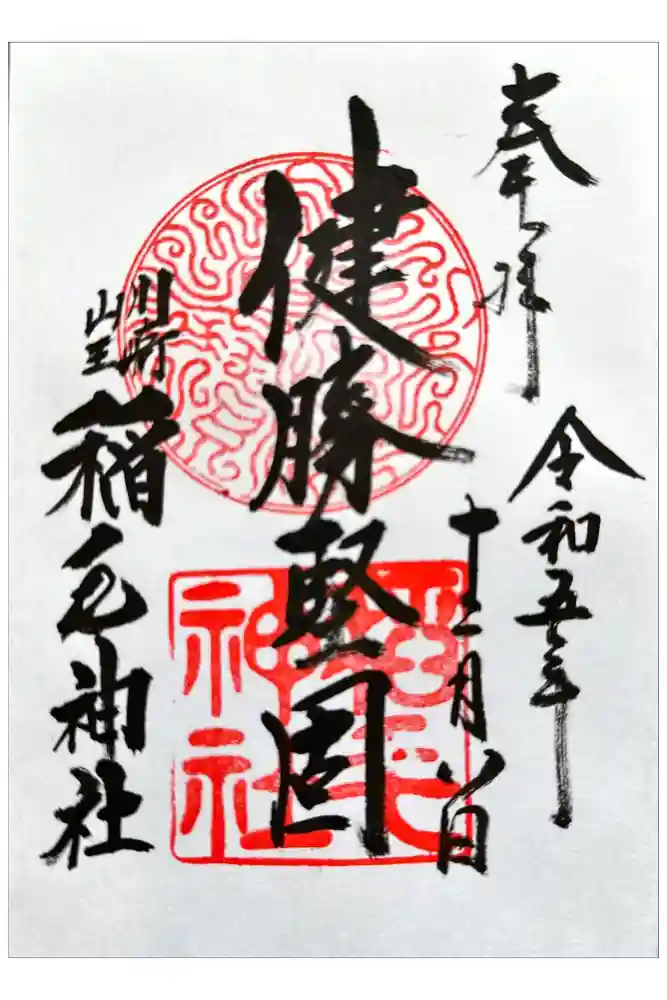 奉拝
令和五年
十二月八日
健勝堅固
川崎
山王
稲毛神社
稲毛
神社